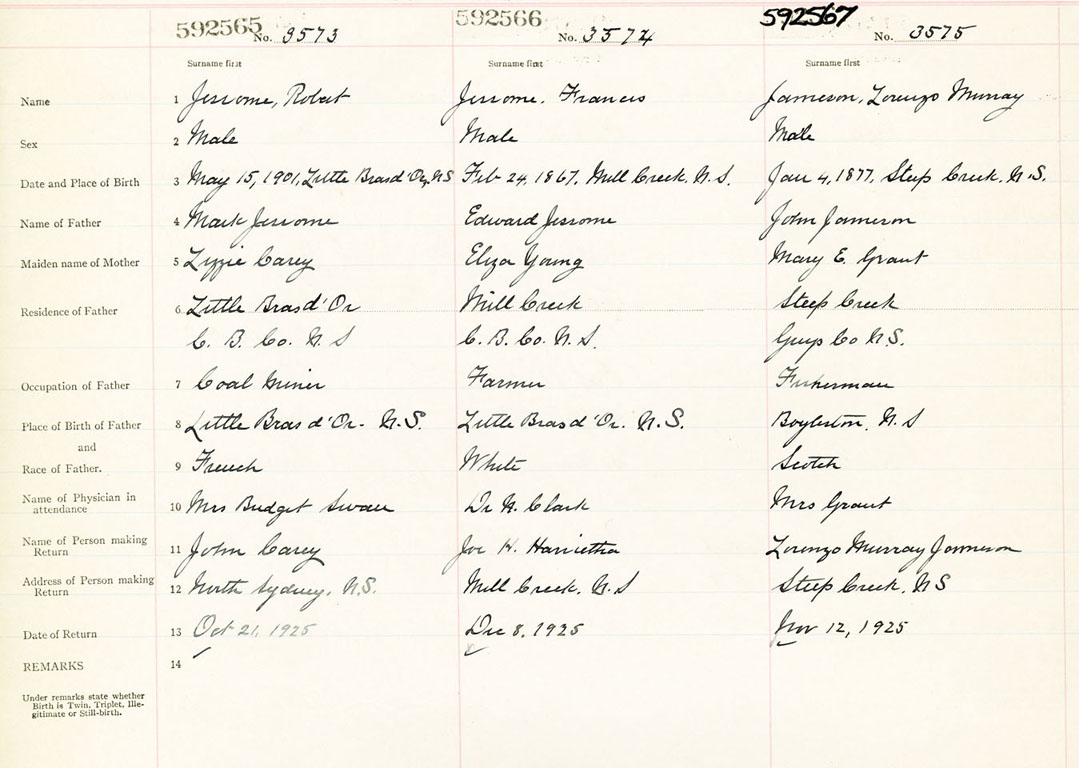 592565 592566 592567
No. 3573 No. 3574 No. 3575
Surname first Surname first Surname first
Name 1 Jessome, Robert Jessome, Francis Jameson, Lorenzo Murray
Sex 2 Male Male Male
Date and Place of Birth 3 May 15, 1901, Little Bras d'Or, N.S Feb 24, 1867, Mill Creek, N.S. Jan 4, 1877, Steep Creek, N.S.
Name of Father 4 Mark Jessome Edward Jessome John Jameson
Maiden name of Mother 5 Lizzie Carey Eliza Young Mary E. Grant
Residence of Father 6 Little Bras d'Or Mill Creek Steep Creek
C. B. Co. N. S C. B. Co. N. S. Guys Co N.S.
Occupation of Father 7 Coal Miner Farmer Fisherman
Place of Birth of Father 8 Little Bras d'Or. N.S. Little Bras d'Or. N.S. Boylston, N.S
and
Race of Father. 9 French White Scotch
Name of Physician in
attendance 10 Mrs Budget Swan Dr N. Clark Mrs Grant
Name of Person making
Return 11 John Carey Joe H. Lorenzo Murray Jameson
Address of Person making
Return 12 North Sydney, N.S. Mill Creek, N.S Steep Creek, NS
Date of Return 13 Oct 21, 1925 Dec 8, 1925 Nov 12, 1925
REMARKS 14
Under remarks state whether
Birth is Twin, Triplet, Ille-
gitimate or Still-birth.